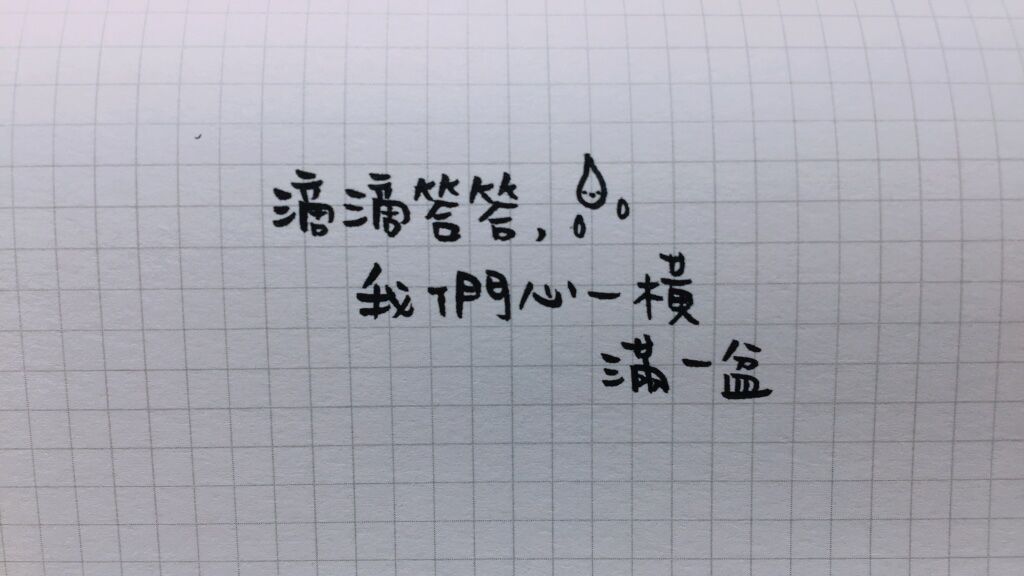 滴滴答答,
我們心一橫
滿一盆